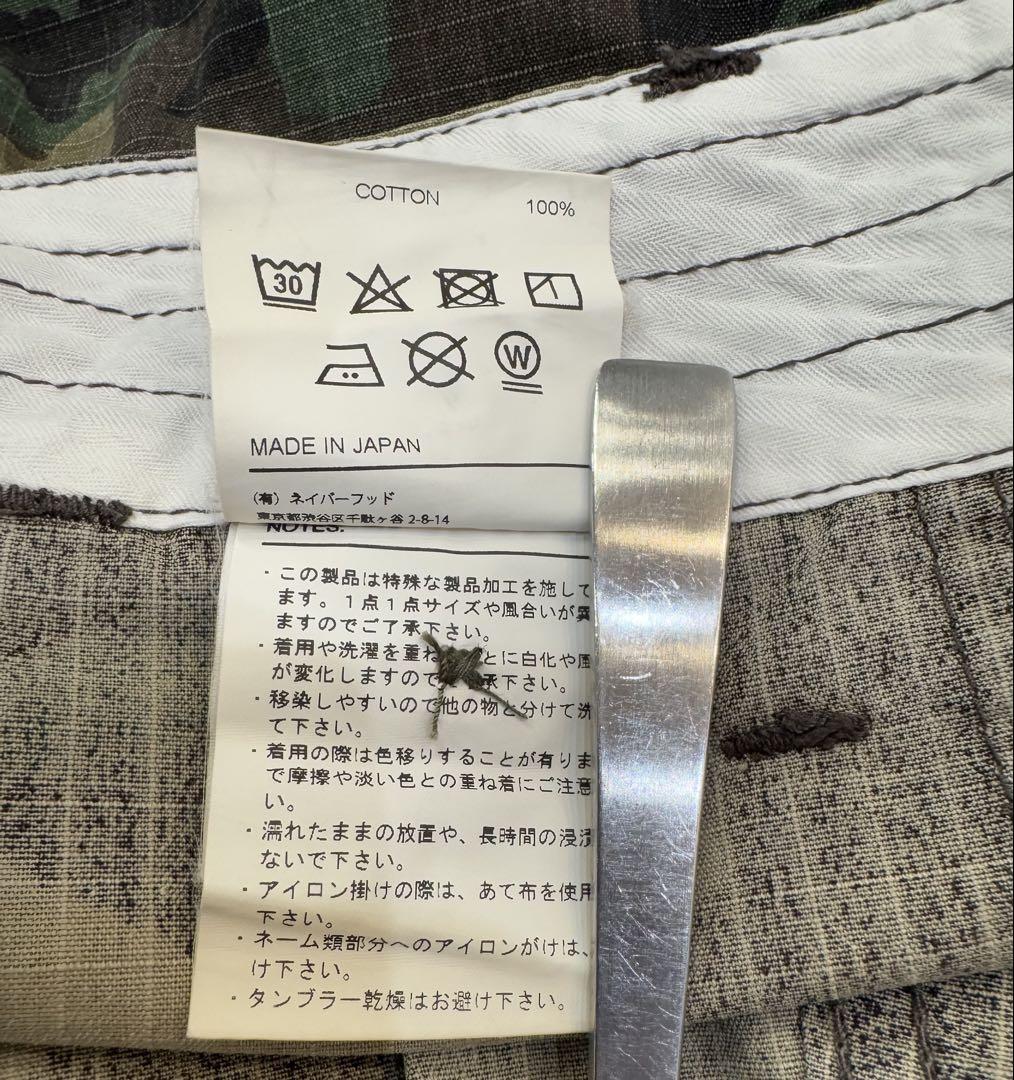 COTTON 100%
30
W
MADE IN JAPAN
(有) ネイバーフッド
東京都渋谷区千駄ヶ谷 2-8-14
NOTES:
・この製品は特殊な製品加工を施して
ます。1点1点サイズや風合いが異
ますのでご了承下さい。
・着用や洗濯を重ね とに白化や風
が変化しますので 承下さい。
・移染しやすいので他の物と分けて洗
て下さい。
・着用の際は色移りすることが有りま
で摩擦や淡い色との重ね着にご注意
い。
・濡れたままの放置や、長時間の浸漬
ないで下さい。
・アイロン掛けの際は、あて布を使用
下さい。
・ネーム類部分へのアイロンがけは、
け下さい。
・タンブラー乾燥はお避け下さい。